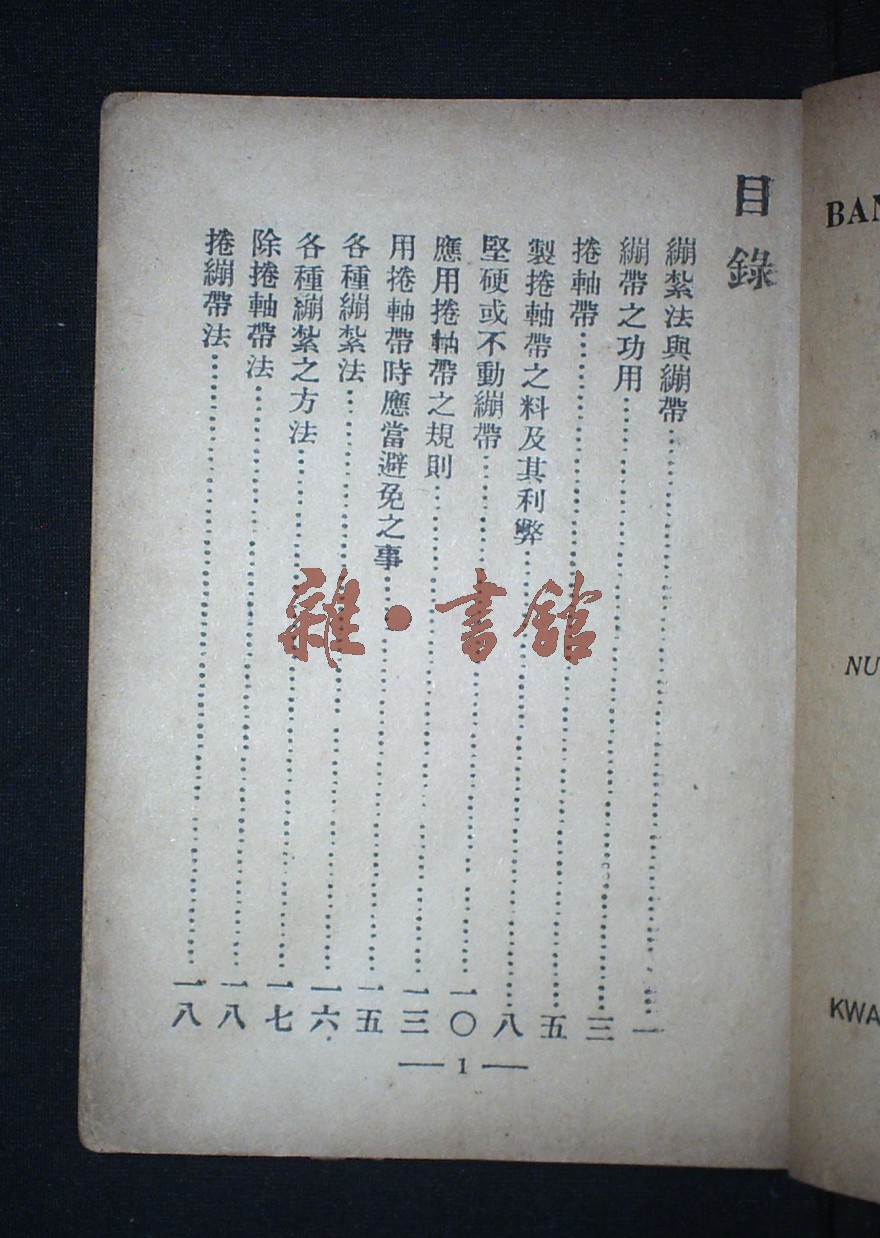 目錄
繃紮法與繃帶……一
繃帶之功用……三
捲軸帶……五
製捲軸帶之料及其利弊……八
堅硬或不動繃帶……一〇
應用捲軸帶之規則……一三
用捲軸帶時應當避免之事……一五
各種繃紮法……一六
各種繃紮之方法……一七
除捲軸帶法……一八
捲繃帶法……一八
— 1 —
雜·書館
BAN
NU
KWA